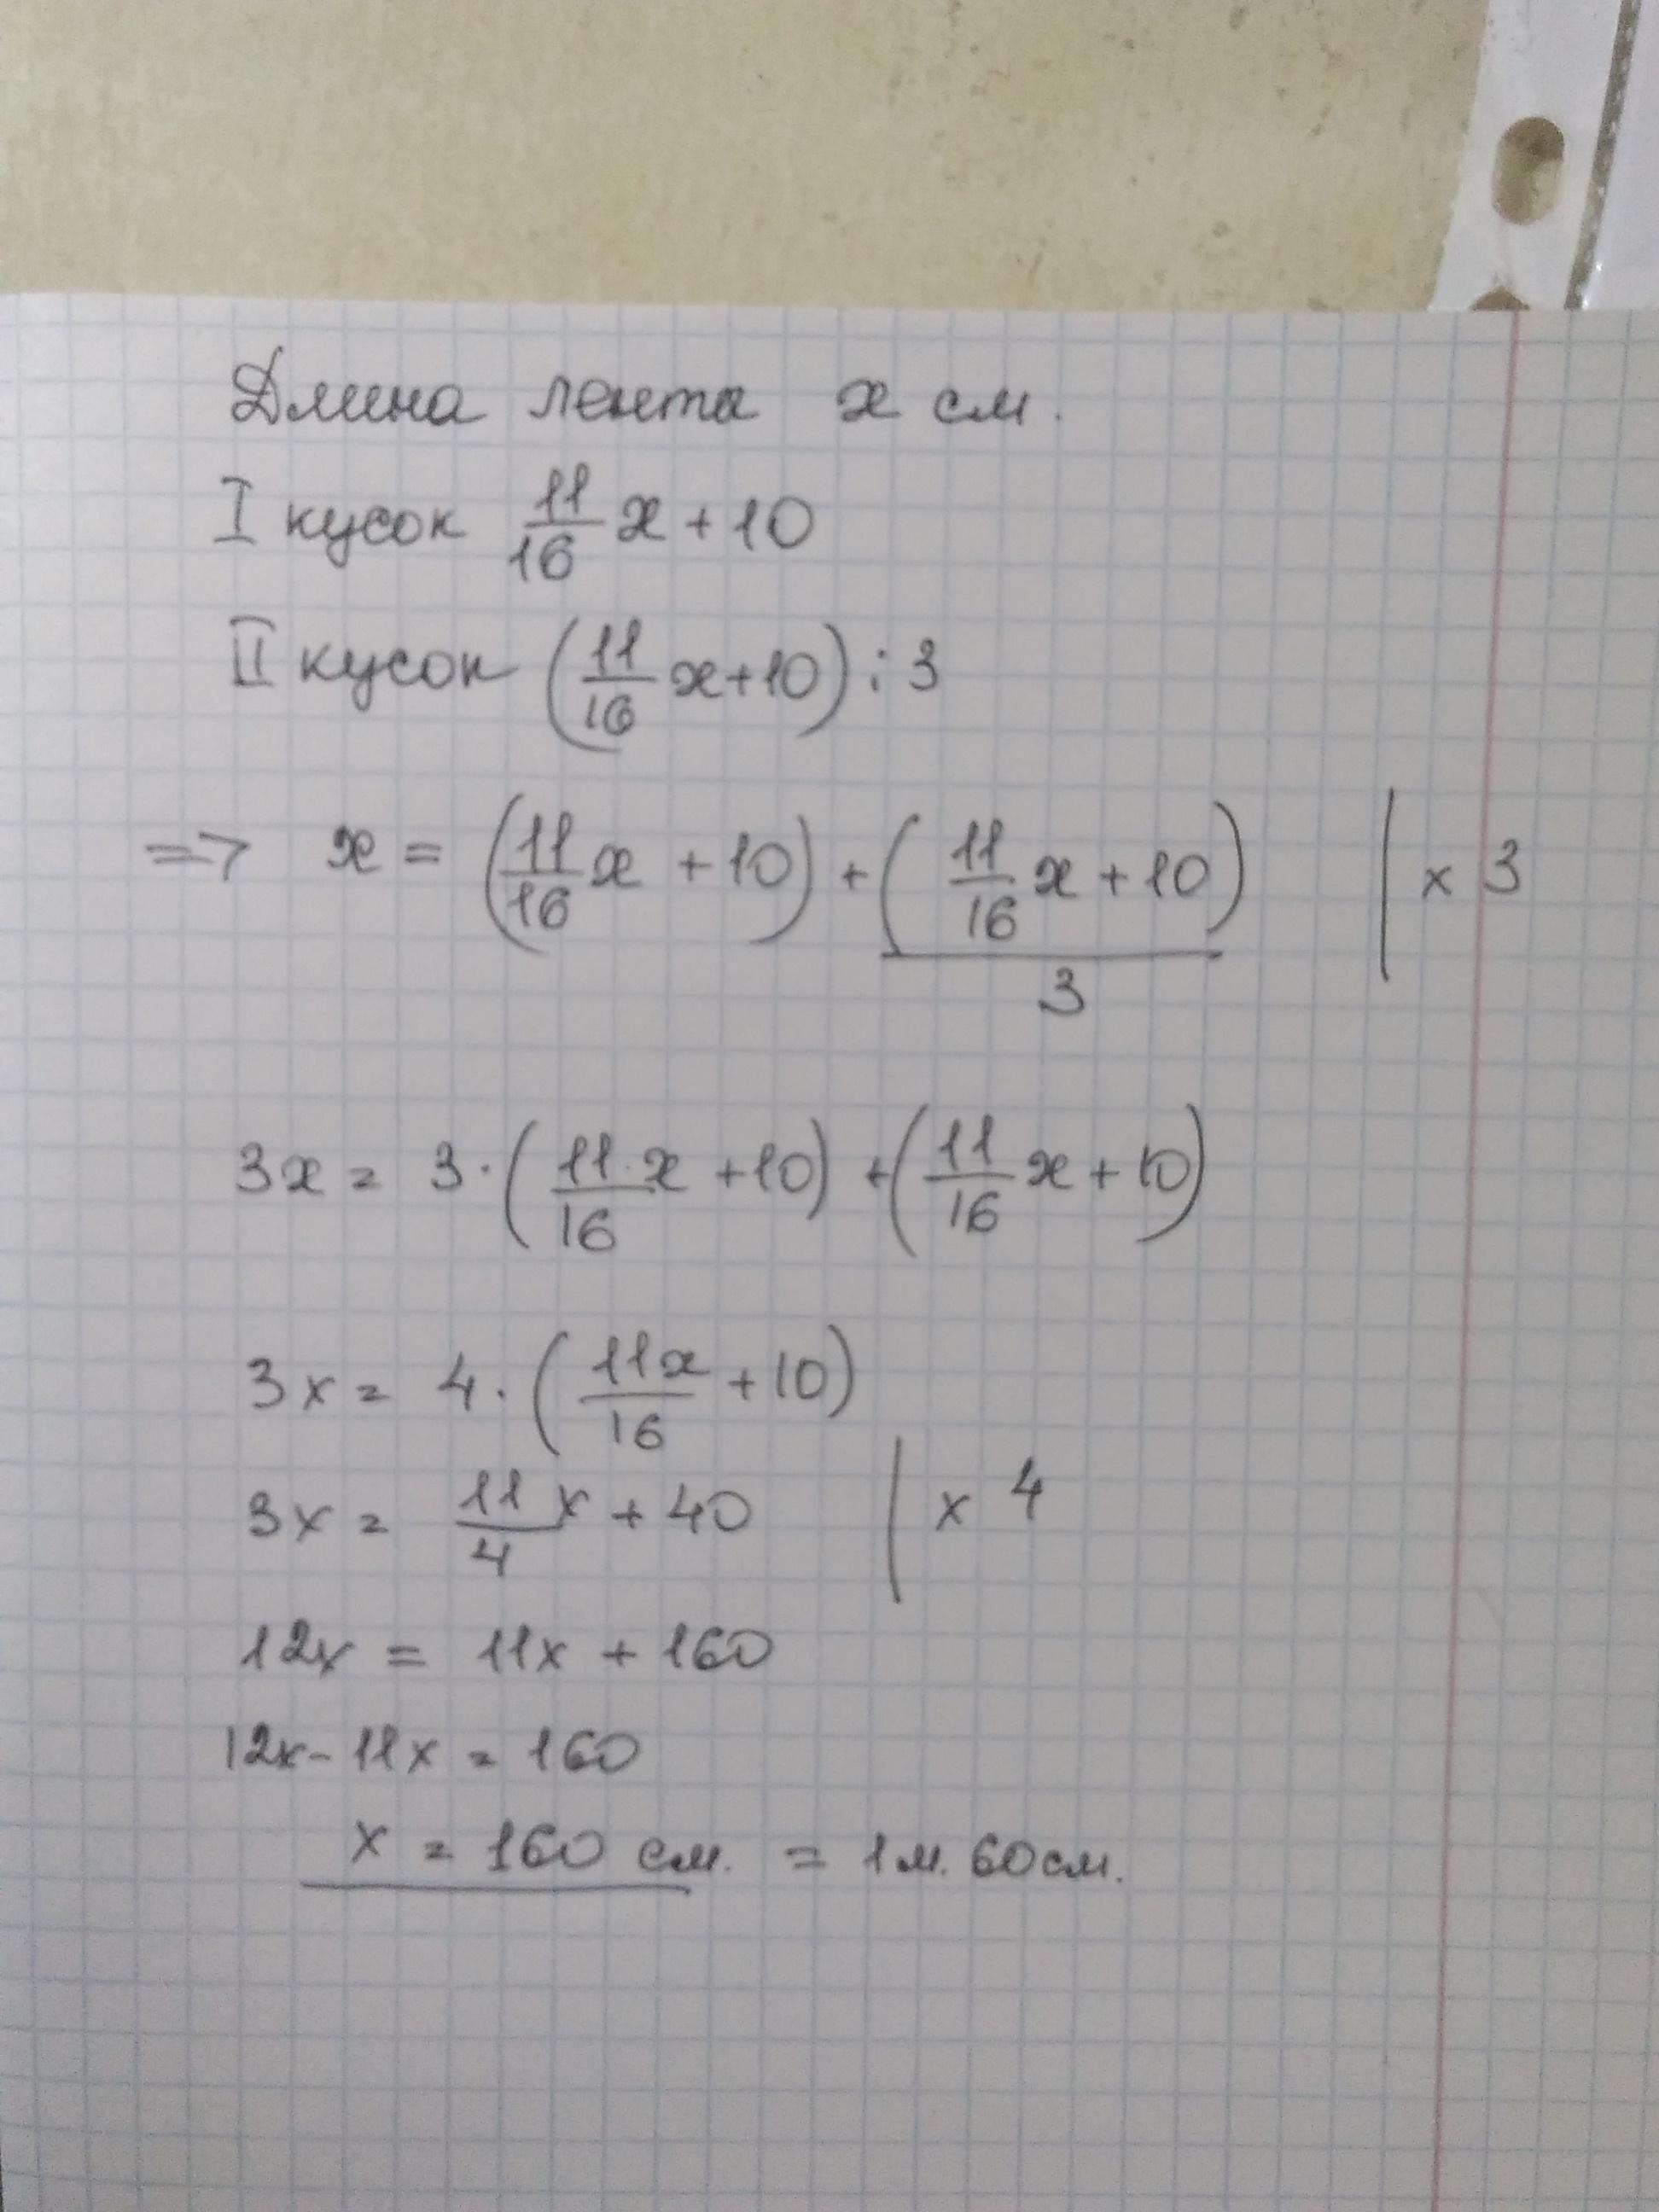 Длина лента x см.
I кусок 11/16 x + 10
II кусок (11/16 x + 10) : 3
=> x = (11/16 x + 10) + (11/16 x + 10)/3 | × 3
3x = 3 · (11x/16 + 10) + (11/16 x + 10)
3x = 4 · (11x/16 + 10)
3x = 11/4 x + 40 | × 4
12x = 11x + 160
12x - 11x = 160
x = 160 см. = 1 м. 60 см.